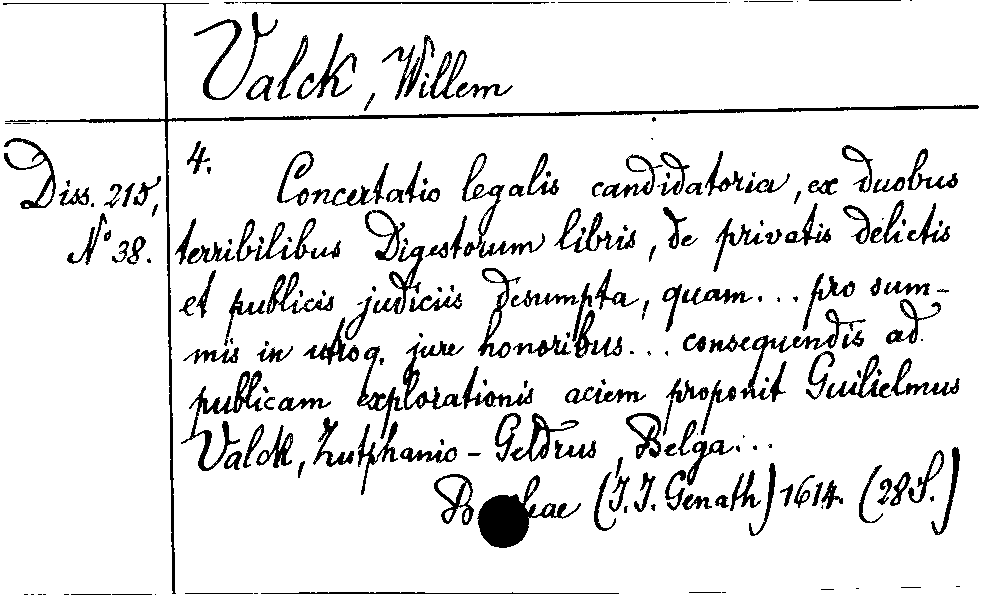 Valck, Willem
Diss. 215,
No 38.
4.
Concertatio legalis candidatoria, ex duobus
terribilibus Digestorum libris, de privatis delictis
et publicis judiciis desumpta, quam... pro sum-
mis in utroq. jure honoribus... consequendis ad
publicam explorationis aciem proponit Guilielmus
Valck, Zutphanio-Geldrus, Belga...
(J. J. Genath) 1614. (28 S.)